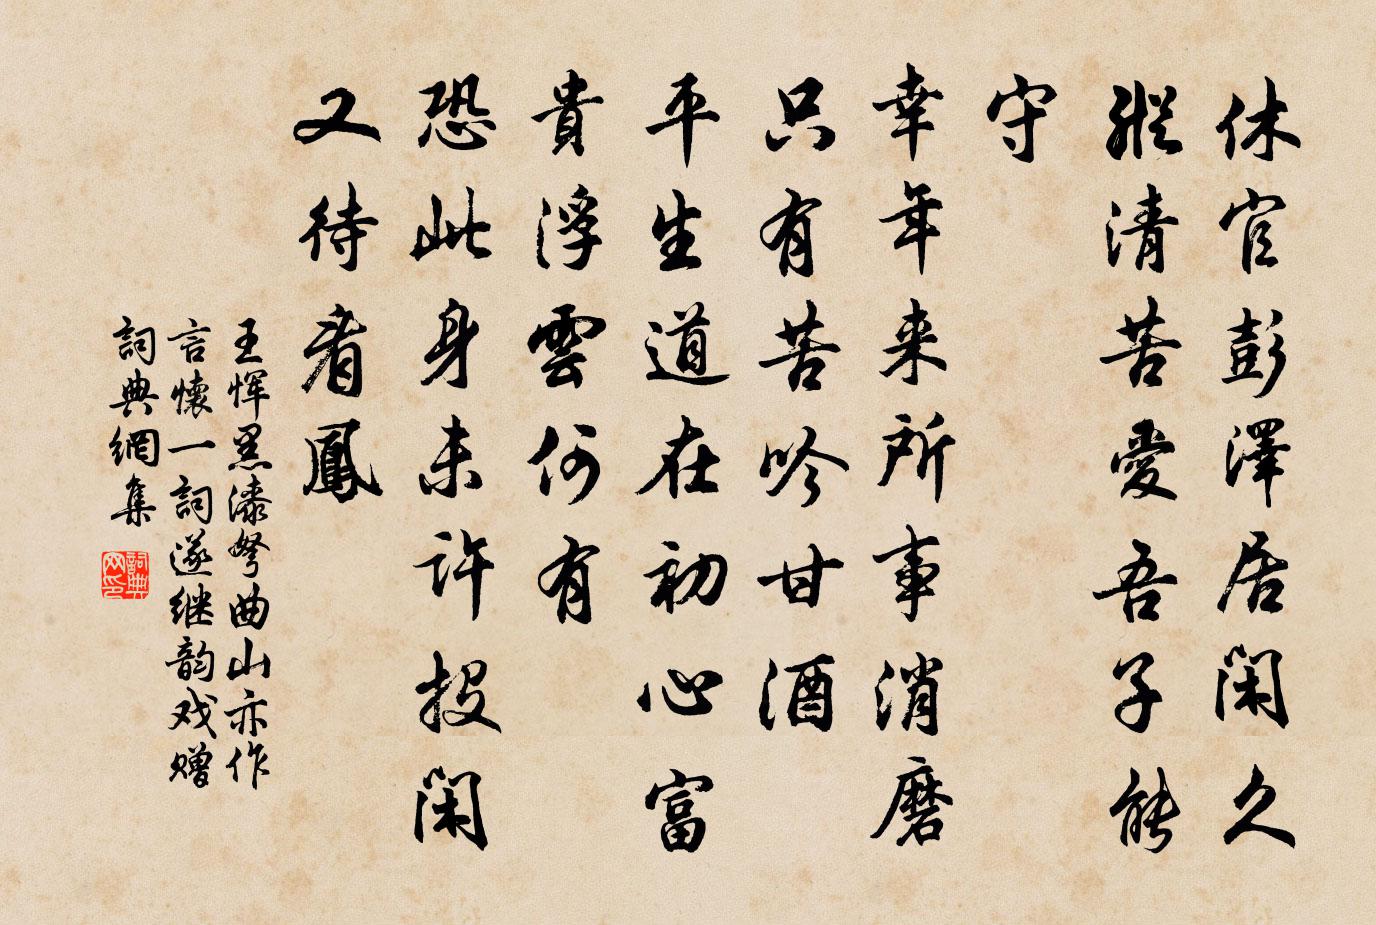 休官彭澤居閑久
縱清苦愛吾子能
守
幸年来所事消磨
只有苦吟甘酒
平生道在初心富
貴浮雲何有
恐此身未許投閑
又待看鳳
王恽黑漆弩曲山亦作
言懷一詞遂继韵戏赠
詞典網集
詞典网印